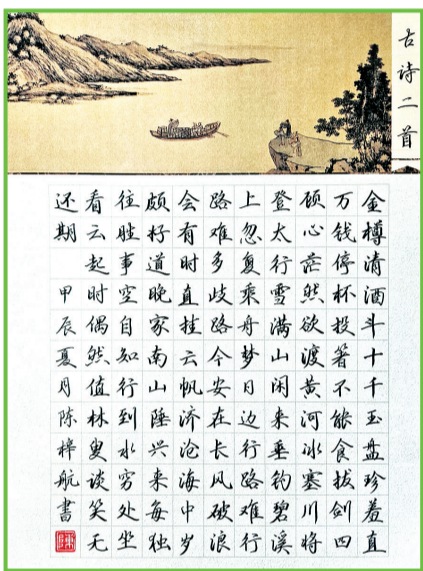 古诗二首
金樽清酒斗十千玉盘珍羞直
万钱停杯投箸不能食拔剑四
顾心茫然欲渡黄河冰塞川将
登太行雪满山闲来垂钓碧溪
上忽复乘舟梦日边行路难行
路难多歧路今安在长风破浪
会有时直挂云帆济沧海中岁
颇好道晚家南山陲兴来每独
往胜事空自知行到水穷处坐
看云起时偶然值林叟谈笑无
还期 甲辰夏月陈梓航书